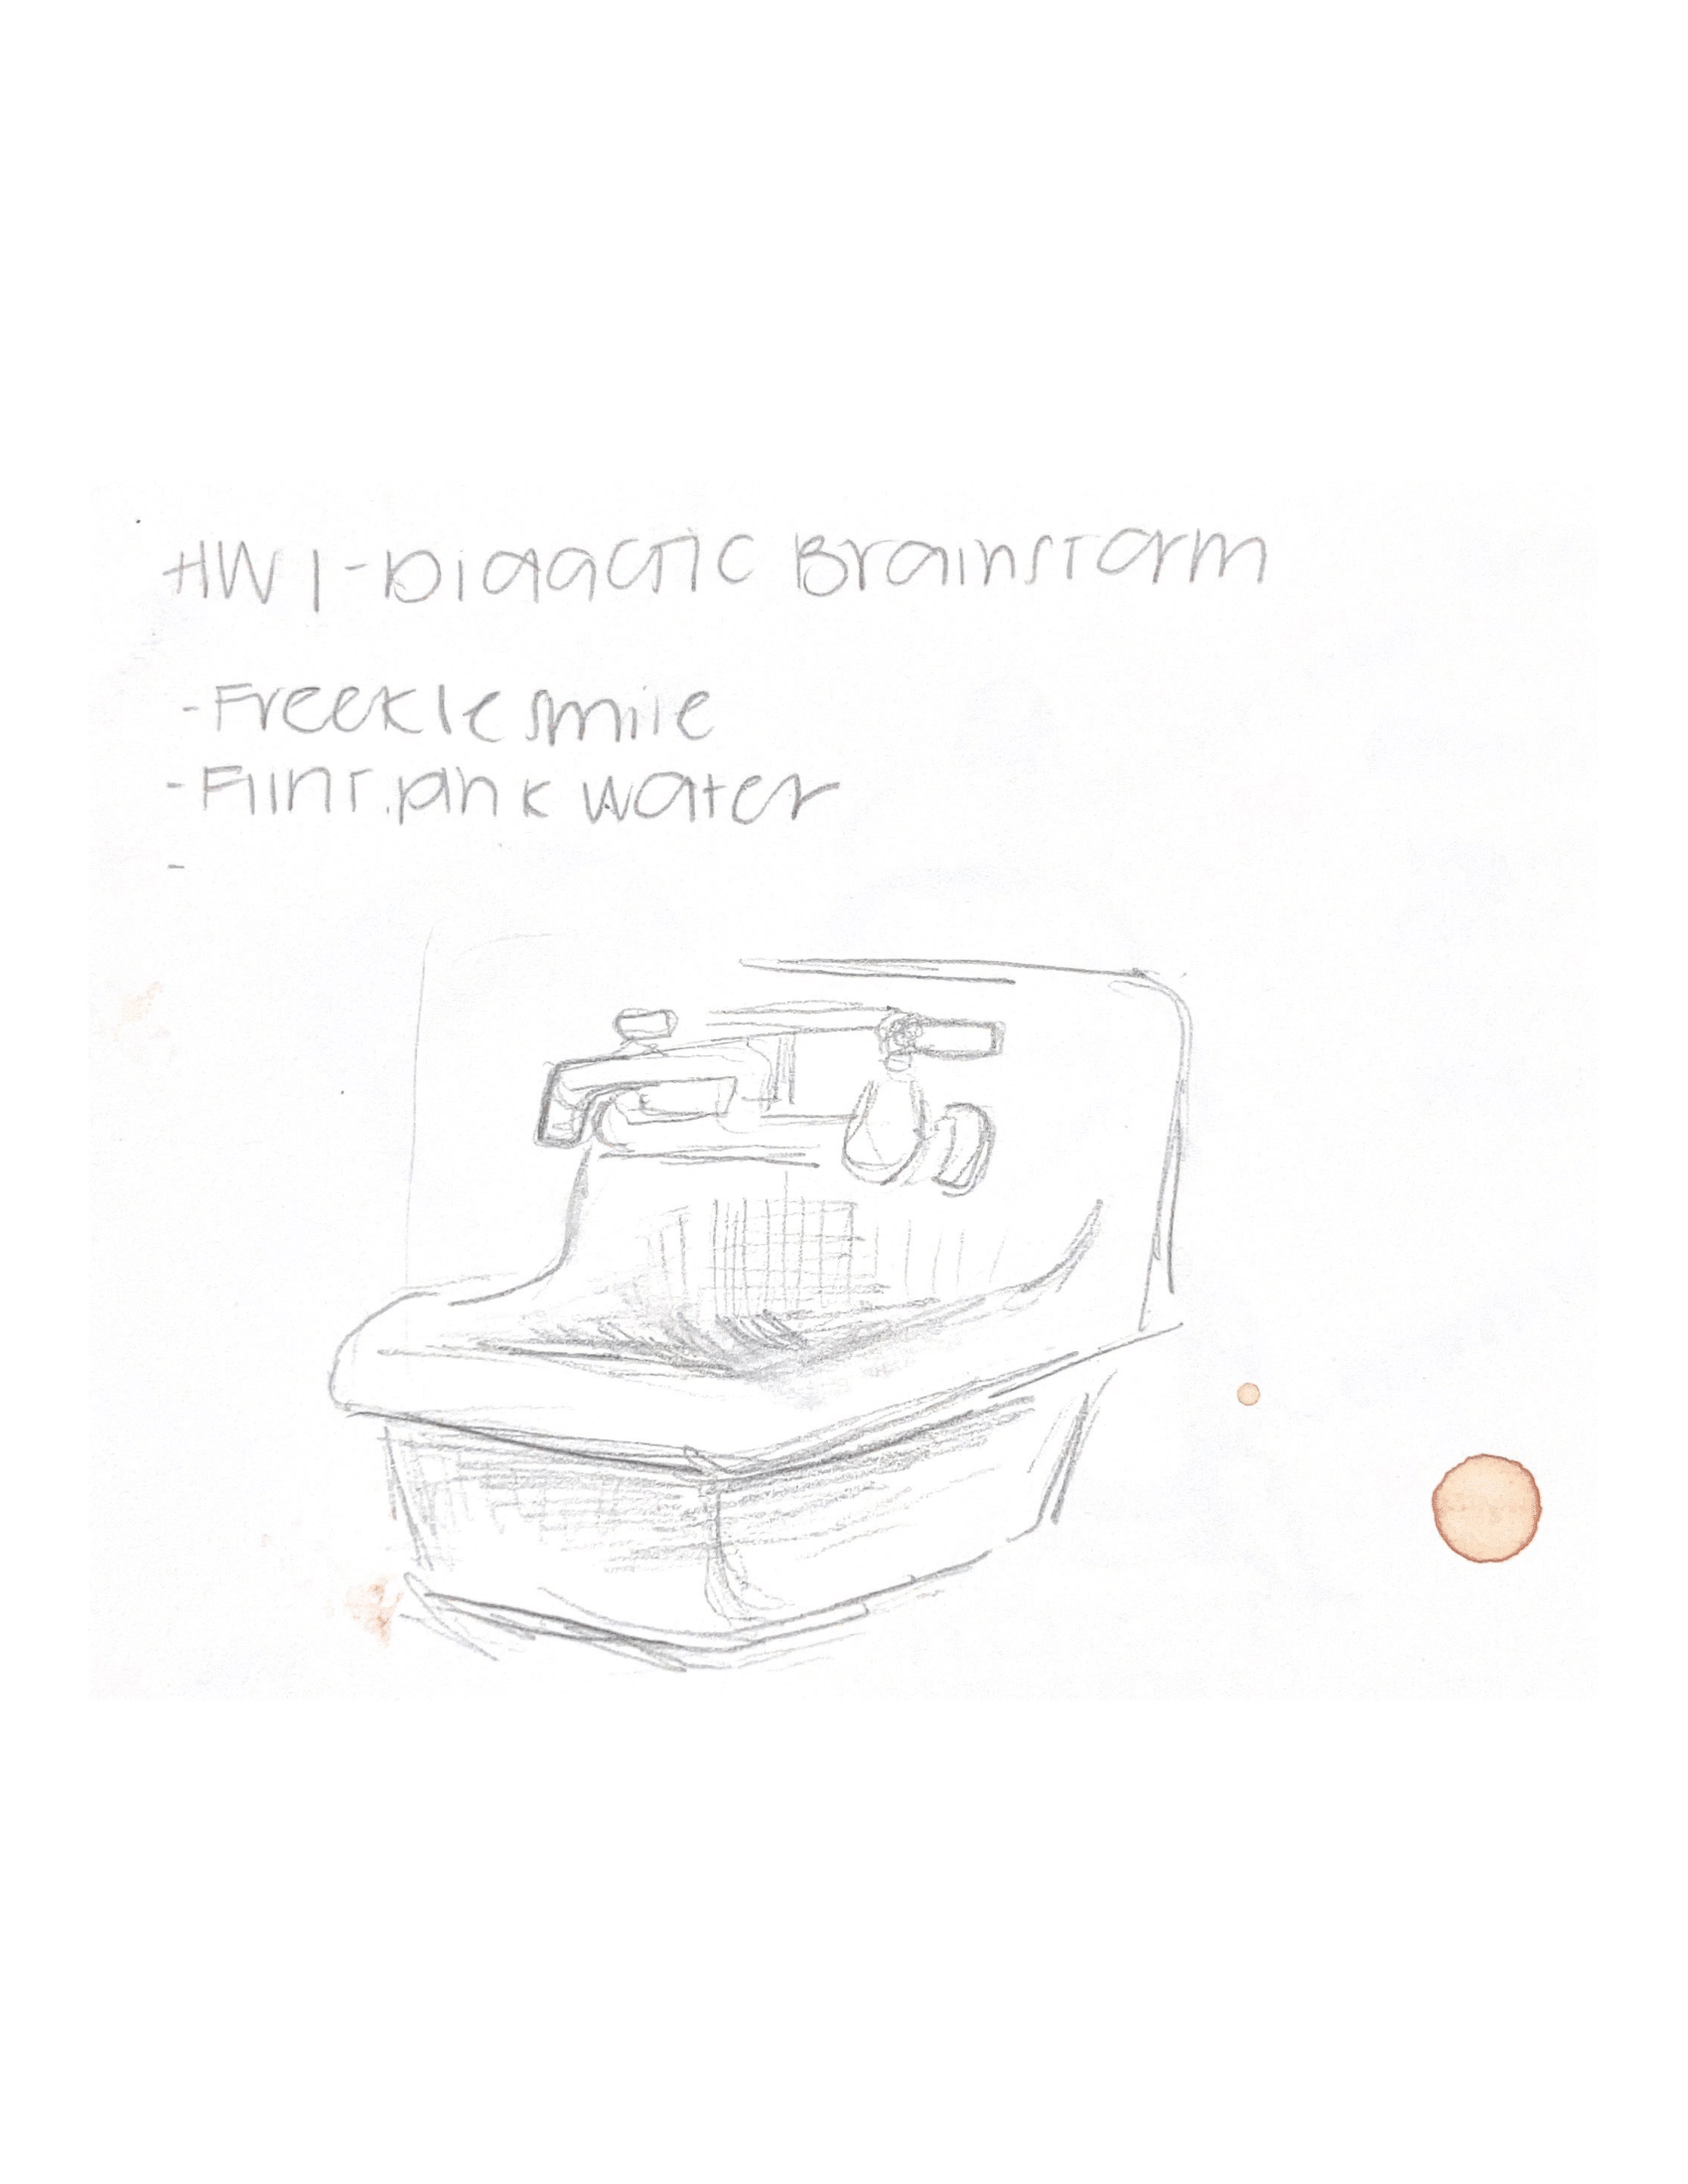 HW 1 - Didactic Brainstorm
- Freekle smile
- Flint. pink water
-